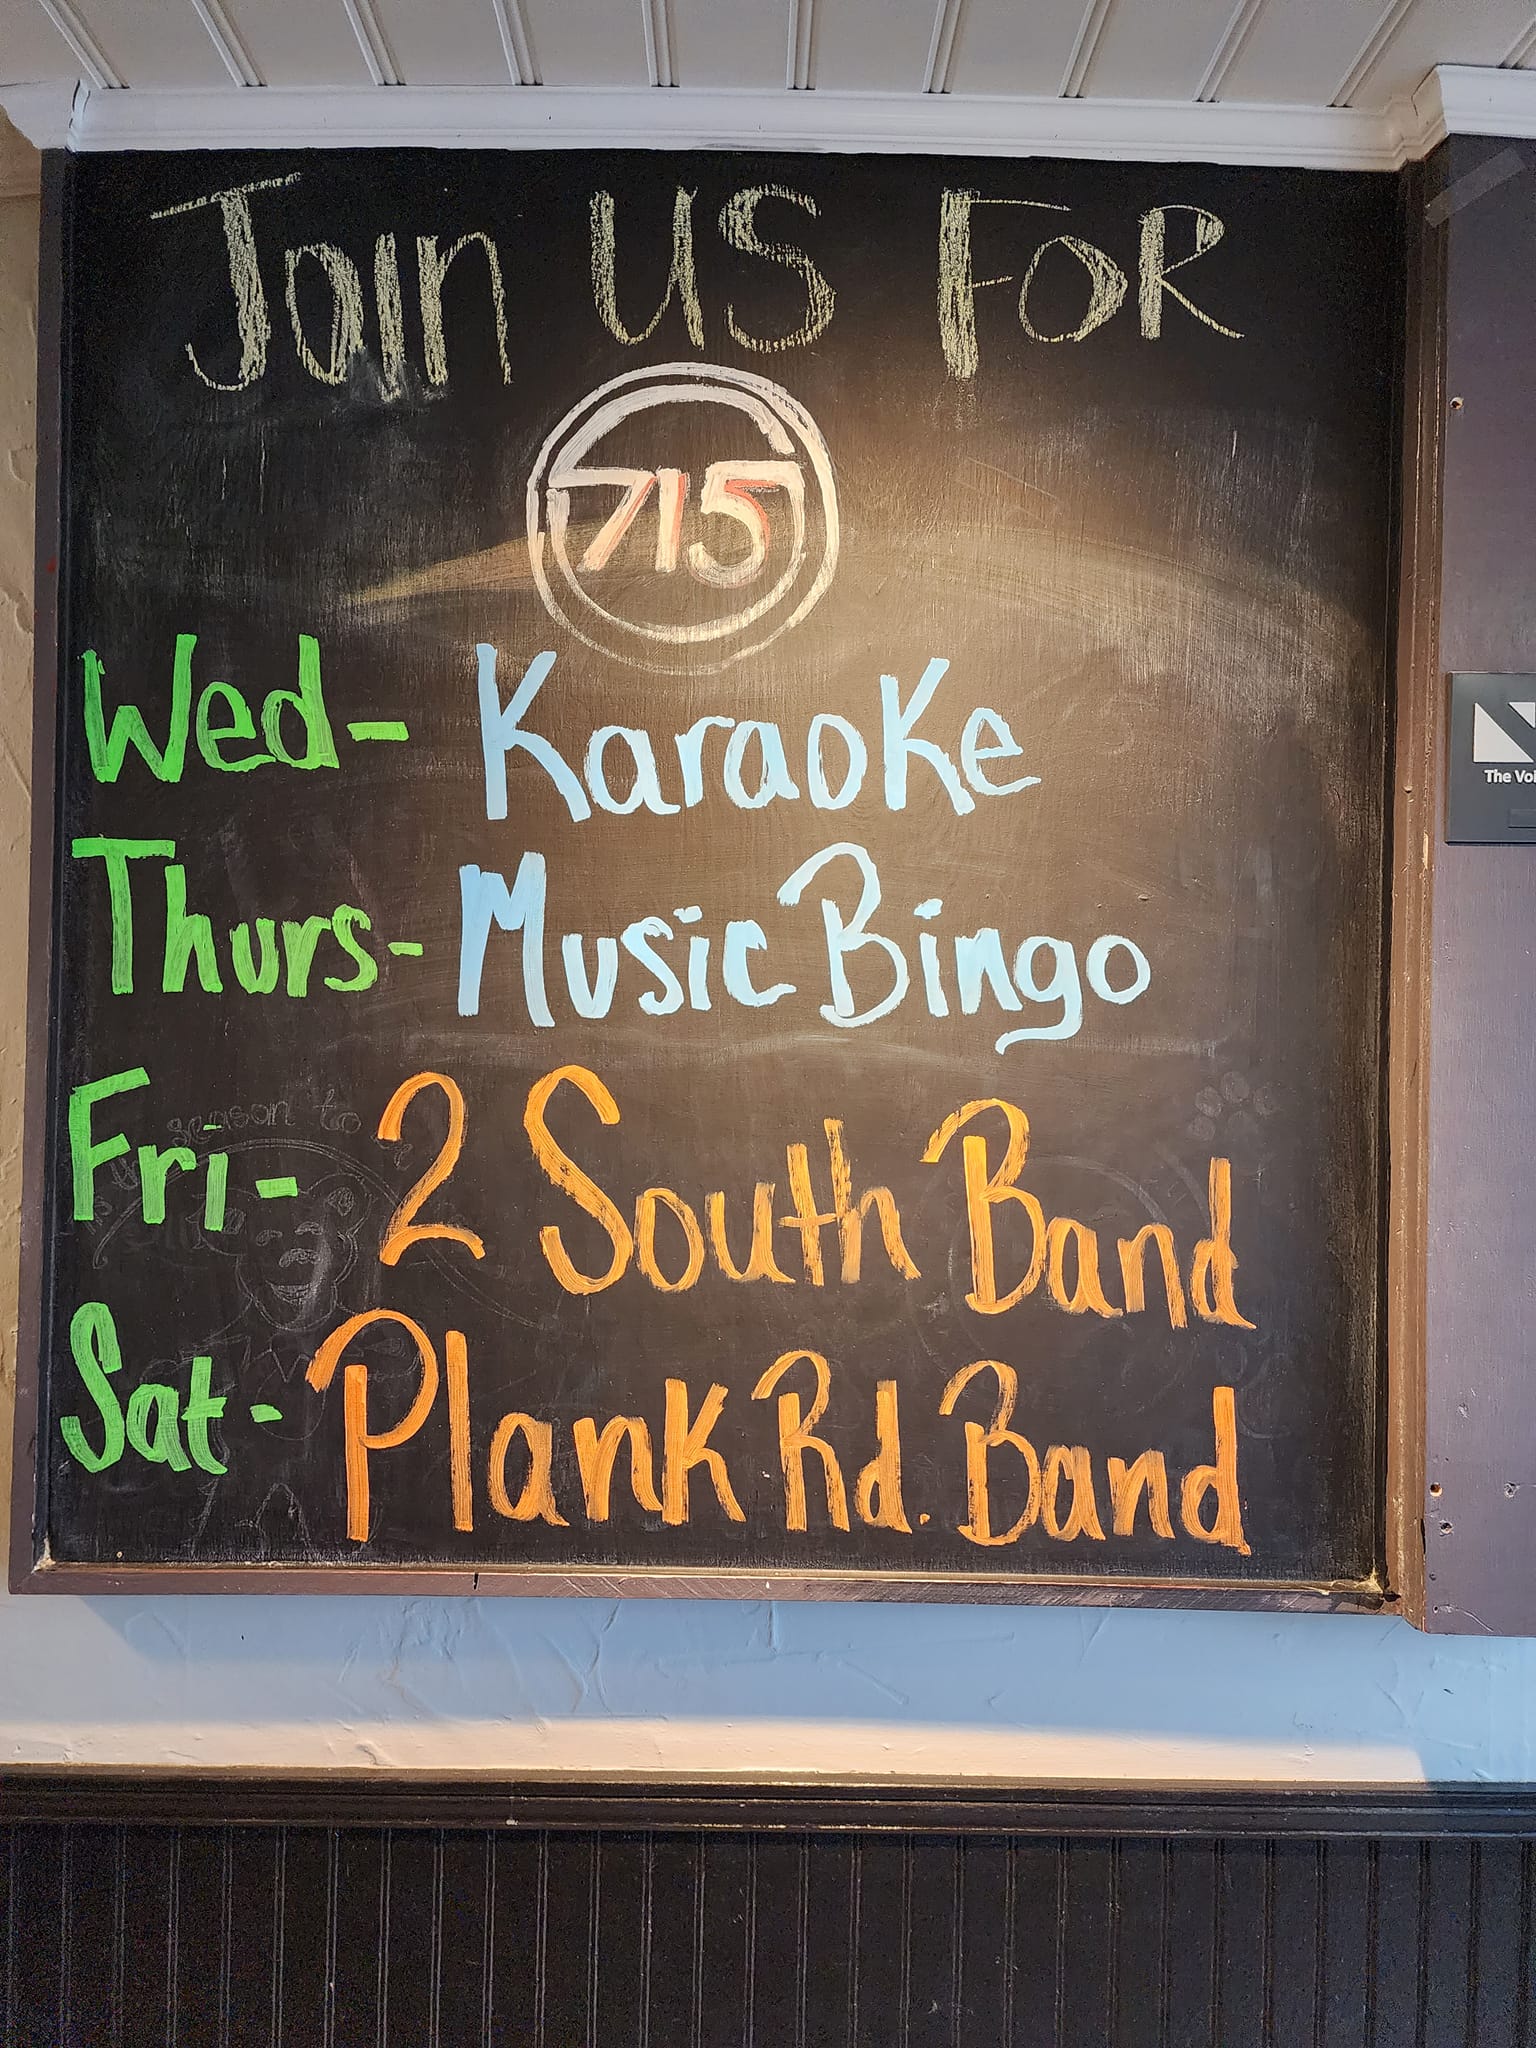 Join US FOR
715
Wed- Karaoke
Thurs- Music Bingo
Fri- 2 South Band
season to
Sat- Plank Rd. Band
The Voi